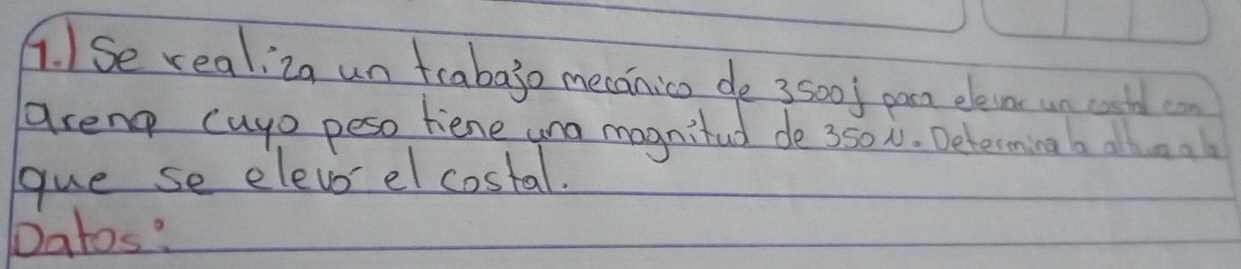 1.) Se realiza un trabajo mecánico de 3500j para elevar un costal con
arena cuyo peso tiene una magnitud de 350 N. Determina la altura a la
que se elevó el costal.
Datos: